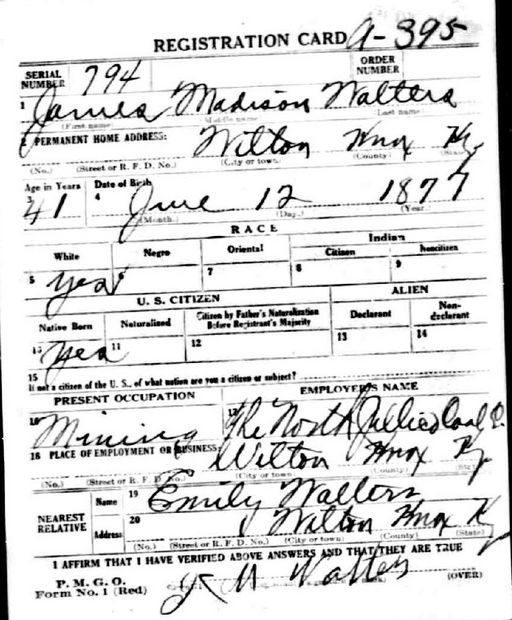 REGISTRATION CARD A-395
SERIAL NUMBER 794 ORDER NUMBER
1 James Madison Walters
(First name) (Middle name) (Last name)
2 PERMANENT HOME ADDRESS: Wilton Knox Ky
(No.) (Street or R. F. D. No.) (City or town) (County) (State)
Age in Years Date of Birth
3 41 4 June 12 1877
(Month.) (Day.) (Year.)
RACE
White Negro Oriental Indian
Citizen Noncitizen
5 yes 6 7 8 9
U. S. CITIZEN ALIEN
Native Born Naturalized Citizen by Father's Naturalization Before Registrant's Majority Declarant Non-declarant
10 yes 11 12 13 14
15 If not a citizen of the U. S., of what nation are you a citizen or subject?
PRESENT OCCUPATION EMPLOYER'S NAME
16 Mining 17 The North Jellico Coal
18 PLACE OF EMPLOYMENT OR BUSINESS: Wilton Knox Ky
(No.) (Street or R. F. D. No.) (City or town) (County) (State)
NEAREST RELATIVE Name 19 Emily Walters
Address 20 Wilton Knox Ky
(No.) (Street or R. F. D. No.) (City or town) (County) (State)
I AFFIRM THAT I HAVE VERIFIED ABOVE ANSWERS AND THAT THEY ARE TRUE
P. M. G. O.
Form No. 1 (Red) M Walters (OVER)